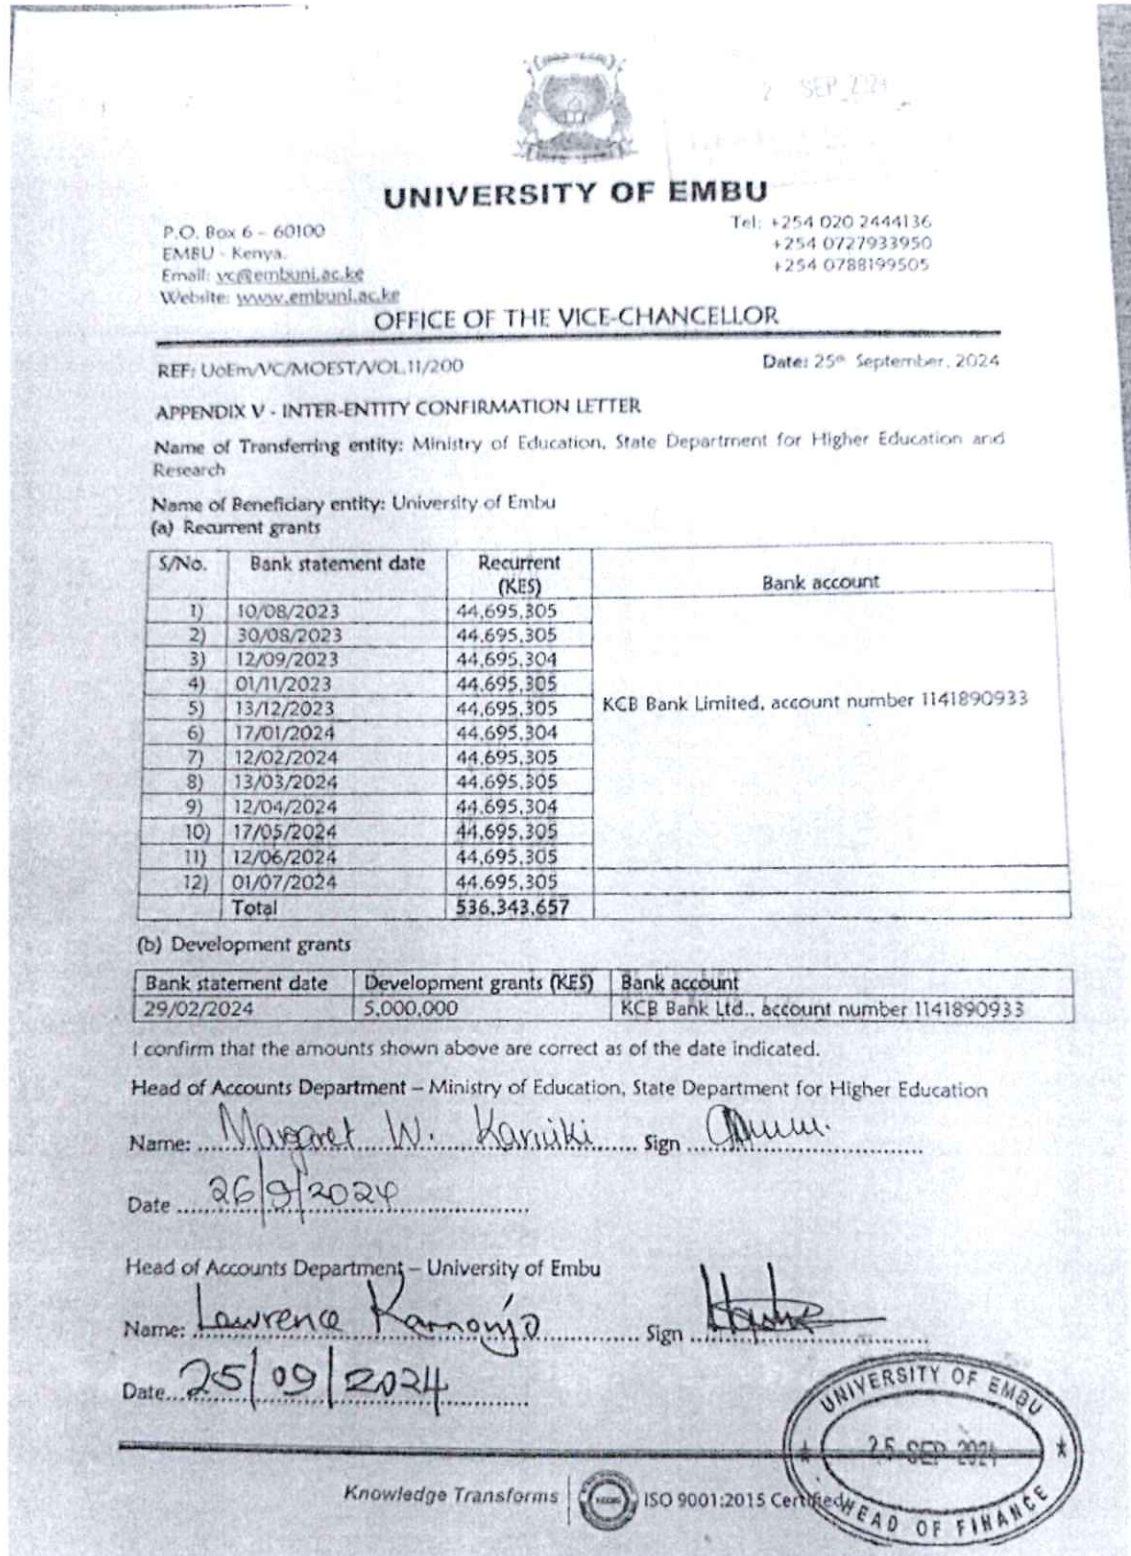 SEP 2024
UNIVERSITY OF EMBU
P.O. Box 6 – 60100
EMBU - Kenya.
Email: vc@embuni.ac.ke
Website: www.embuni.ac.ke
Tel: +254 020 2444136
+254 0727933950
+254 0788199505
OFFICE OF THE VICE-CHANCELLOR
REF: UoEm/VC/MOEST/VOL.11/200
Date: 25th September, 2024
APPENDIX V - INTER-ENTITY CONFIRMATION LETTER
Name of Transferring entity: Ministry of Education, State Department for Higher Education and
Research
Name of Beneficiary entity: University of Embu
(a) Recurrent grants
S/No. Bank statement date Recurrent (KES) Bank account
1) 10/08/2023 44,695,305
2) 30/08/2023 44,695,305
3) 12/09/2023 44,695,304
4) 01/11/2023 44,695,305
5) 13/12/2023 44,695,305 KCB Bank Limited, account number 1141890933
6) 17/01/2024 44,695,304
7) 12/02/2024 44,695,305
8) 13/03/2024 44,695,305
9) 12/04/2024 44,695,304
10) 17/05/2024 44,695,305
11) 12/06/2024 44,695,305
12) 01/07/2024 44,695,305
Total 536,343,657
(b) Development grants
Bank statement date Development grants (KES) Bank account
29/02/2024 5,000,000 KCB Bank Ltd., account number 1141890933
I confirm that the amounts shown above are correct as of the date indicated.
Head of Accounts Department – Ministry of Education, State Department for Higher Education
Name: Margaret W. Kariuki Sign
Date 26/9/2024
Head of Accounts Department – University of Embu
Name: Lawrence Karnonjo Sign
Date 25/09/2024
UNIVERSITY OF EMBU
25 SEP 2024
HEAD OF FINANCE
Knowledge Transforms
ISO 9001:2015 Certified